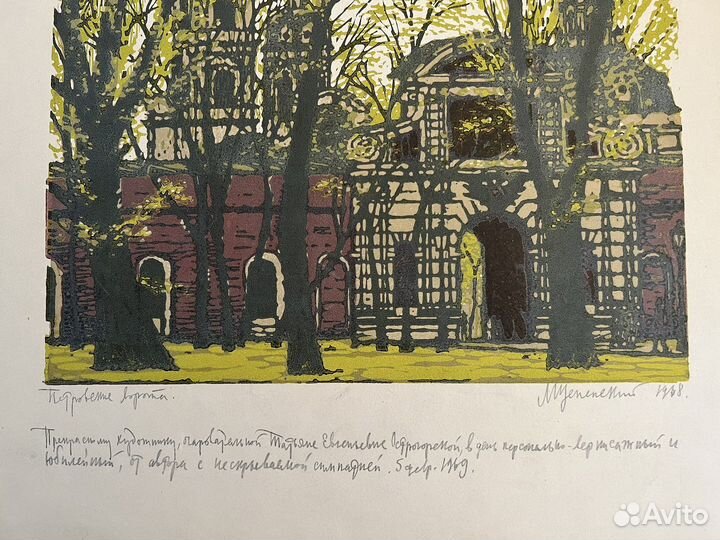 Петровские ворота. МЩепенский 1968.
Прекрасному художнику, очаровательной Татьяне Евгеньевне Острогорской, в день персонально-вернисажный и
юбилейный, от автора с нескрываемой симпатией. 5 февр. 1969.
Avito